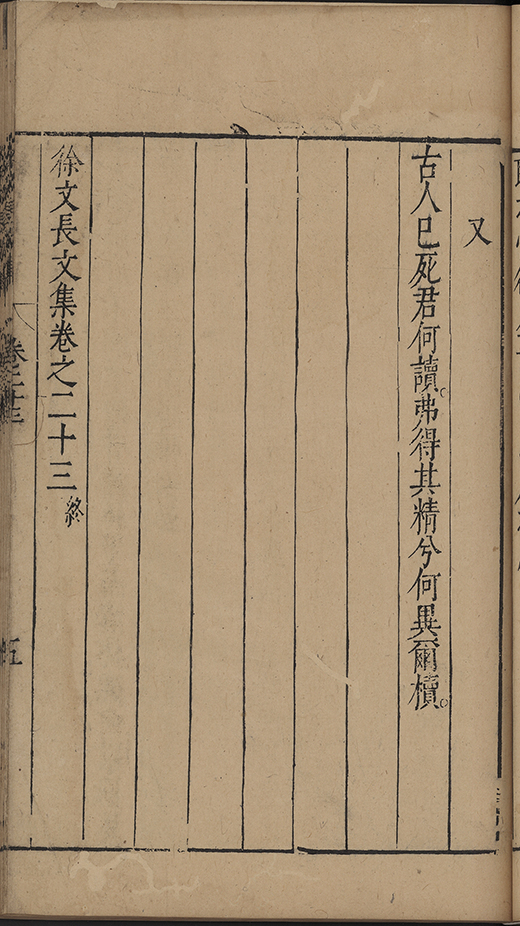 又
古人已死君何讀。弗得其精兮何異爾櫝。
徐文長文集卷之二十三終
卷二十三
五